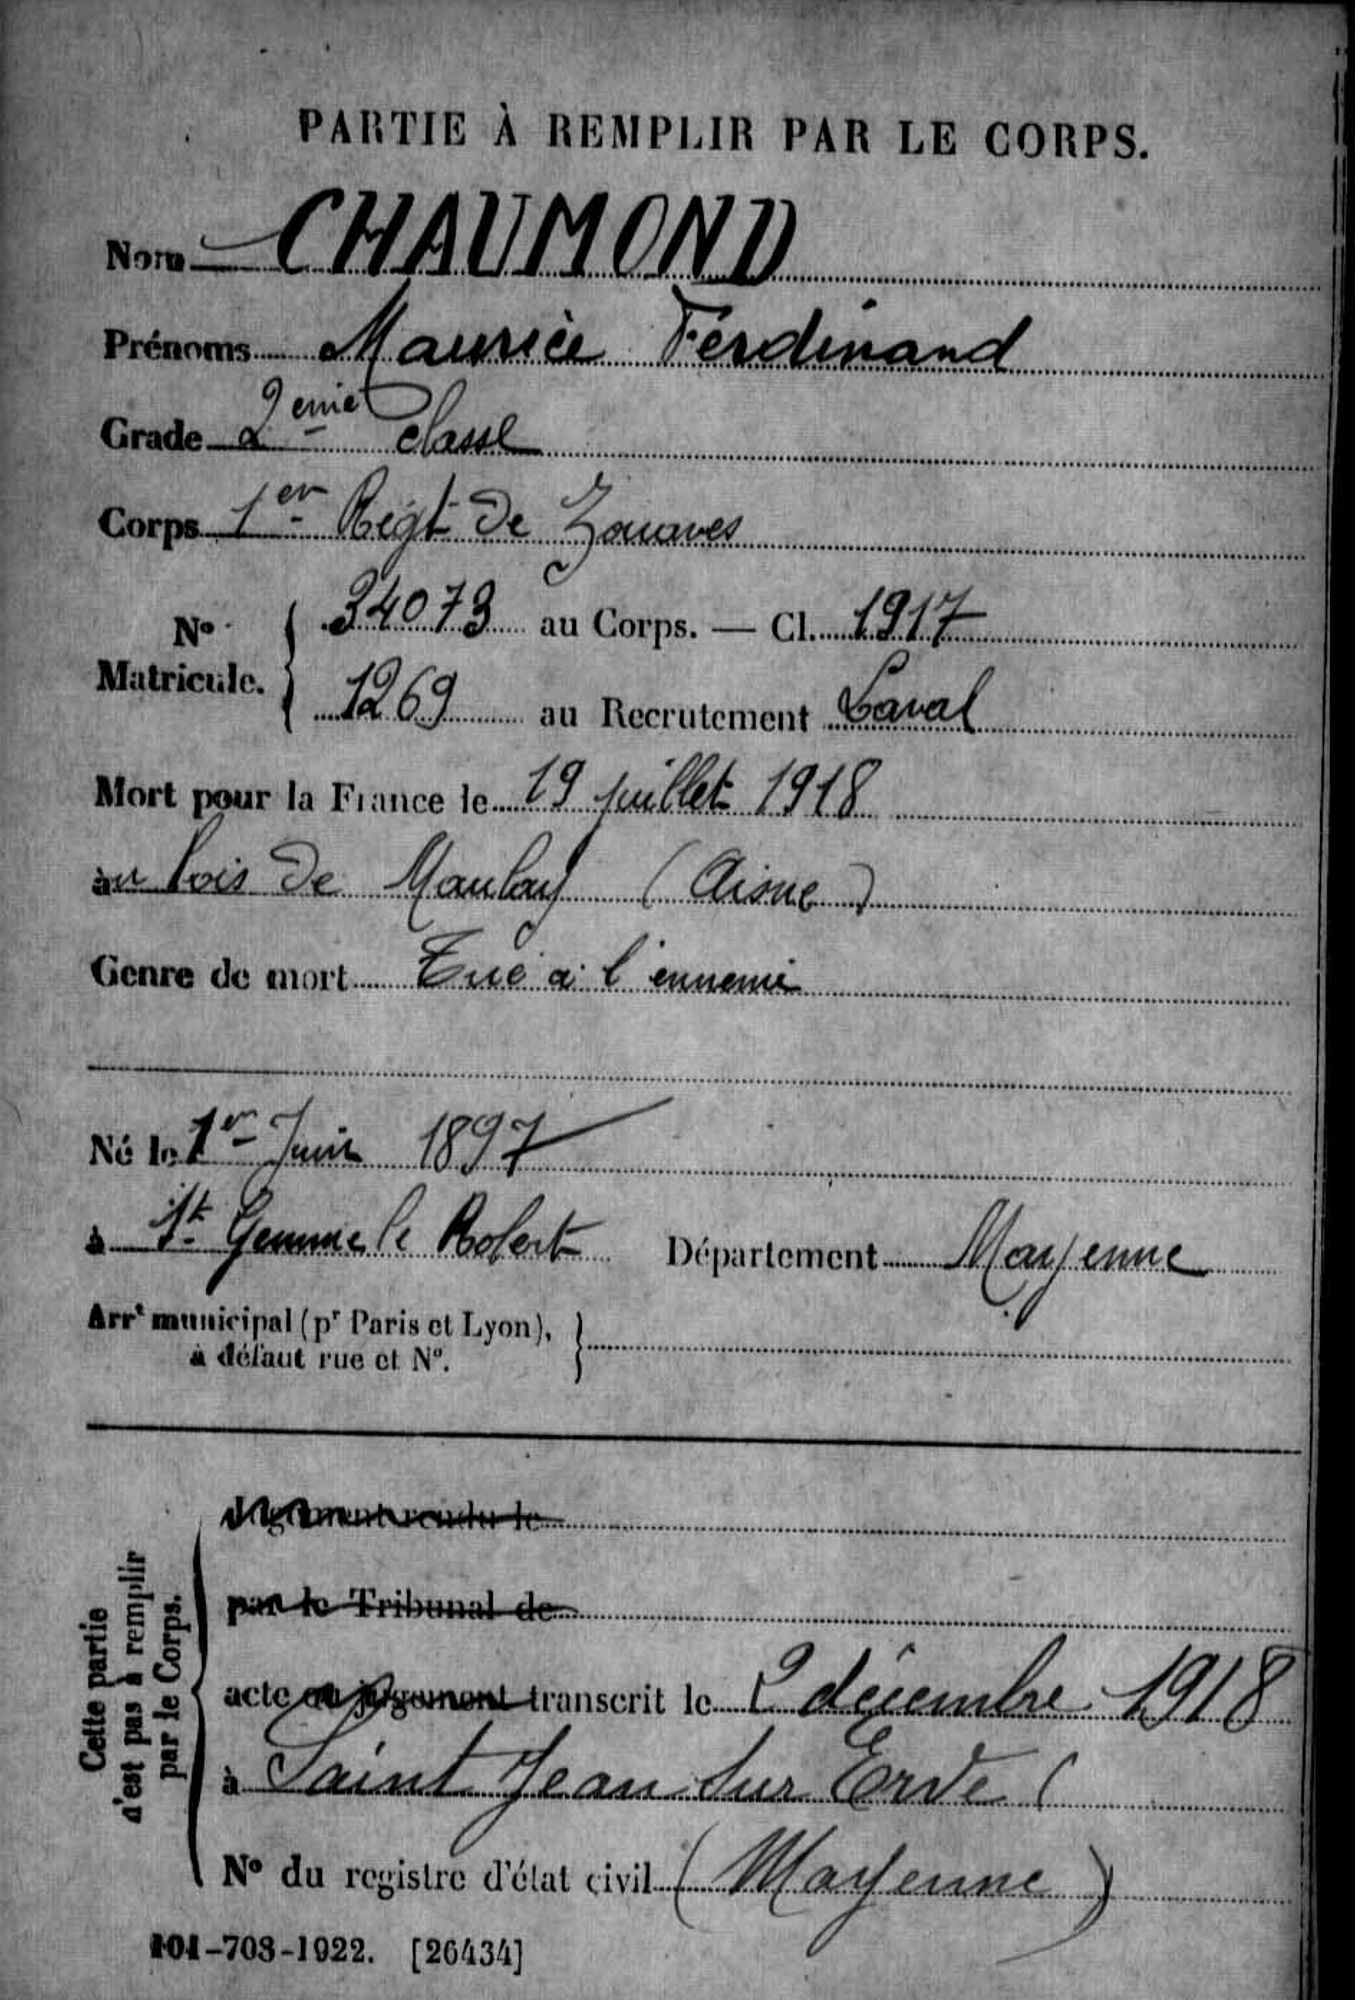 PARTIE À REMPLIR PAR LE CORPS.
Nom CHAUMOND
Prénoms Maurice Ferdinand
Grade 2eme classe
Corps 1er Régt de Zouaves
No Matricule. 34073 au Corps. — Cl. 1917
1269 au Recrutement Laval
Mort pour la France le 19 juillet 1918
au bois de Mauloy (Aisne)
Genre de mort Tué à l'ennemi
Né le 1er Juin 1897
à St Gemme le Robert Département Mayenne
Arrt municipal (pr Paris et Lyon),
à défaut rue et No.
Cette partie
n'est pas à remplir
par le Corps.
Jugement rendu le
par le Tribunal de
acte ou jugement transcrit le 2 décembre 1918
à Saint Jean sur Erve (
No du registre d'état civil (Mayenne)
101-708-1922. [26434]